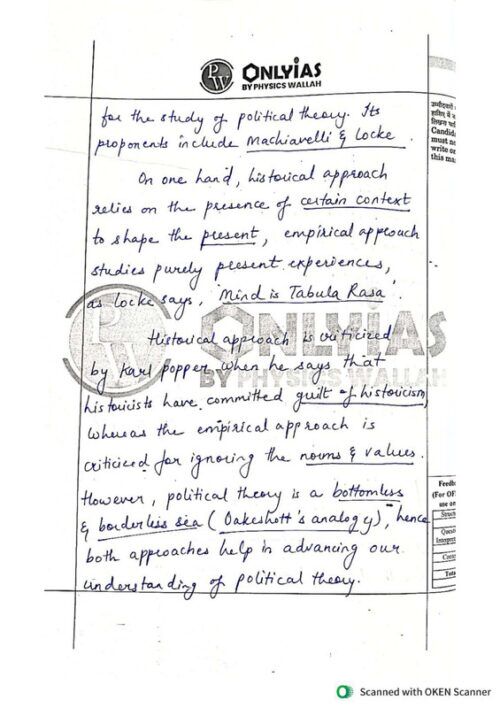 PW ONLYIAS
BY PHYSICS WALLAH
for the study of political theory. Its
proponents include Machiavelli & Locke.
On one hand, historical approach
relies on the presence of certain context
to shape the present, empirical approach
studies purely present experiences,
as Locke says, 'Mind is Tabula Rasa'.
Historical approach is criticized
by Karl popper when he says that
historicists have committed guilt of historicism,
whereas the empirical approach is
criticized for ignoring the norms & values.
However, political theory is a bottomless
& borderless sea (Oakeshott's analogy), hence
both approaches help in advancing our
understanding of political theory.
PW ONLYIAS
BY PHYSICS WALLAH
उम्मीदवारों
हाशिए में
Candid
must no
write on
this ma
Feedb
(For OF
use on
Struc
Quest
Interpret
Conte
Tota
Scanned with OKEN Scanner